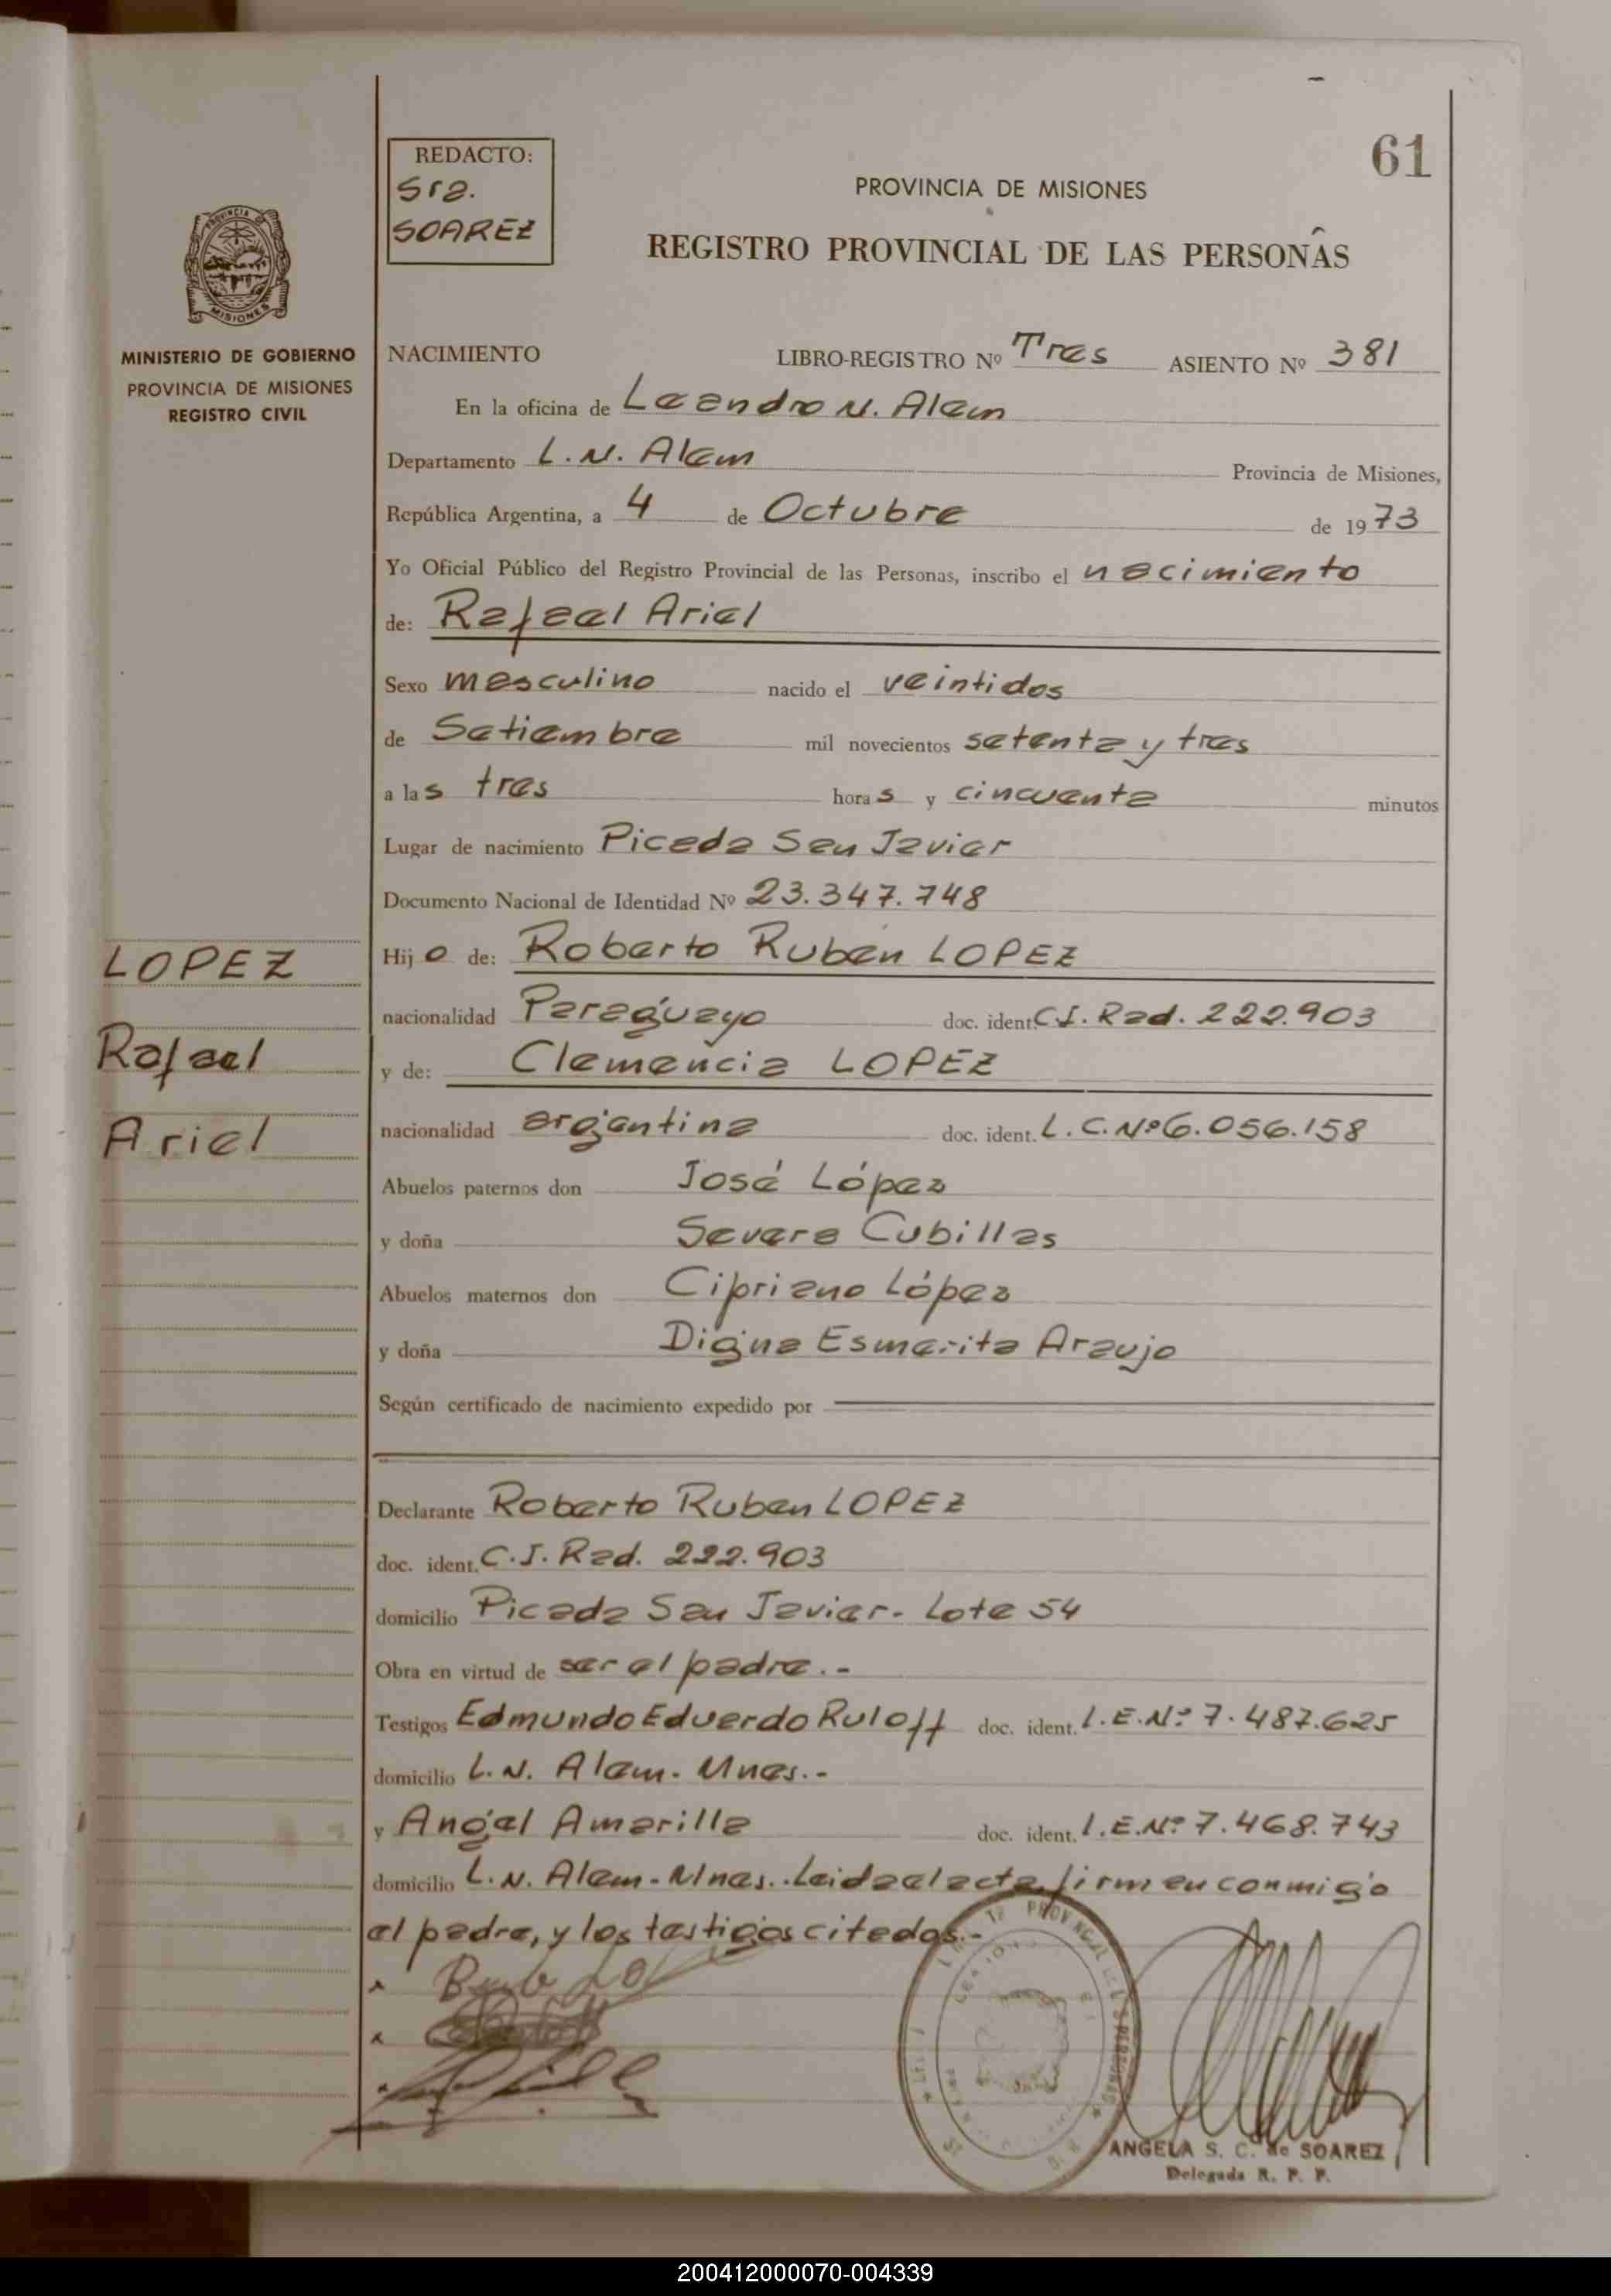 61
REDACTO:
Sra.
SOAREZ
PROVINCIA DE MISIONES
REGISTRO PROVINCIAL DE LAS PERSONAS
PROVINCIA DE
MISIONES
MINISTERIO DE GOBIERNO
PROVINCIA DE MISIONES
REGISTRO CIVIL
NACIMIENTO LIBRO-REGISTRO Nº Tres ASIENTO Nº 381
En la oficina de Leandro N. Alem
Departamento L. N. Alem Provincia de Misiones,
República Argentina, a 4 de Octubre de 1973
Yo Oficial Público del Registro Provincial de las Personas, inscribo el nacimiento
de: Rafael Ariel
Sexo masculino nacido el veintidos
de Setiembre mil novecientos setenta y tres
a las tres horas y cincuenta minutos
Lugar de nacimiento Picada San Javier
Documento Nacional de Identidad Nº 23.347.748
LOPEZ
Rafael
Ariel
Hijo de: Roberto Ruben LOPEZ
nacionalidad Paraguayo doc. ident. C.I. Rad. 222.903
y de: Clemencia LOPEZ
nacionalidad argentina doc. ident. L. C. Nº 6.056.158
Abuelos paternos don José López
y doña Severa Cubillas
Abuelos maternos don Cipriano López
y doña Digna Esmerita Araujo
Según certificado de nacimiento expedido por
Declarante Roberto Ruben LOPEZ
doc. ident. C.I. Rad. 222.903
domicilio Picada San Javier - Lote 54
Obra en virtud de ser el padre.-
Testigos Edmundo Eduardo Ruloff doc. ident. L.E.Nº 7.487.625
domicilio L. N. Alem - Mnes.-
y Angel Amarilla doc. ident. L.E.Nº 7.468.743
domicilio L. N. Alem - Mnes.- Leida el acta, firman conmigo
el padre, y los testigos citados.-
ANGELA S. C. de SOAREZ
Delegada R. P. P.
200412000070-004339